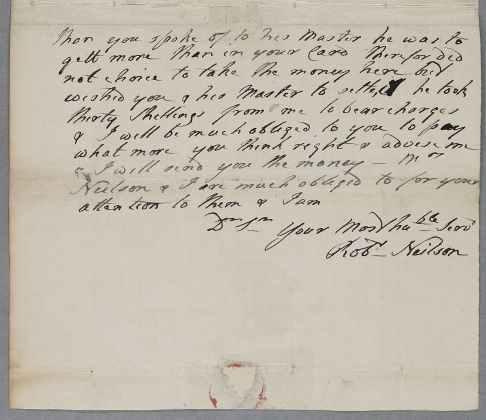 than you spoke of to his Master he was to
gett more than in your Card therefor did
not choice to take the money here but
wished you & his Master to settle it he took
thirty Shillings from me to bear charges
& I will be much obliged to you to pay
what more you think right & advise me
& I will send you the money — Mrs
Neilson & I are much obliged to for your
attention to them & I am
Dr Sir Your Most huble Servt
Robt Neilson